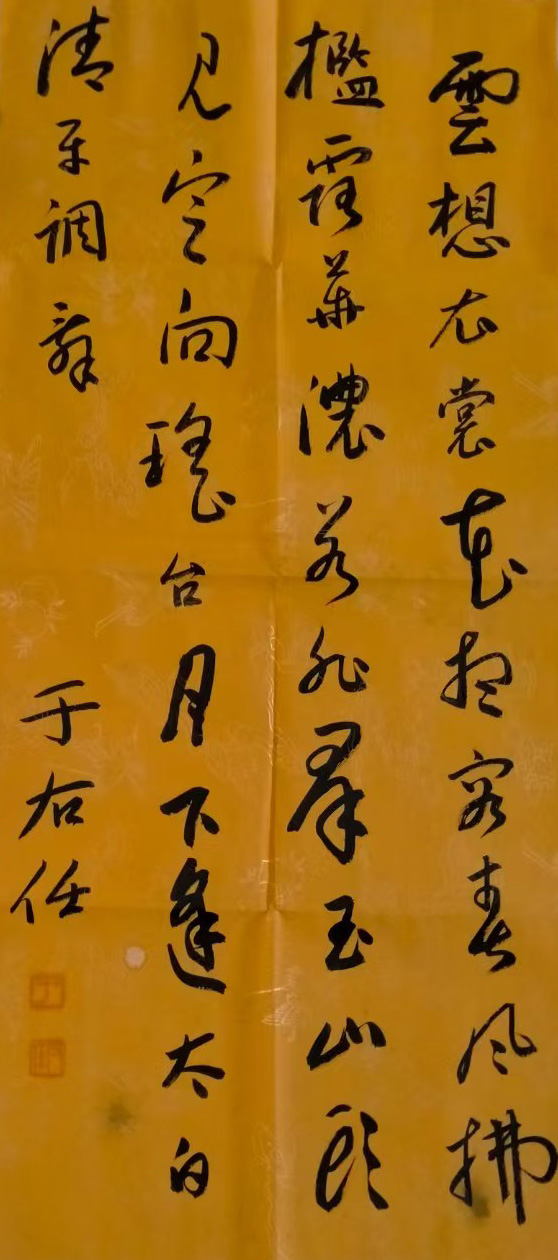 雲想衣裳花想容春風拂
檻露華濃若非羣玉山頭
見向瑤台月下逢太白
清平調辭
于右任